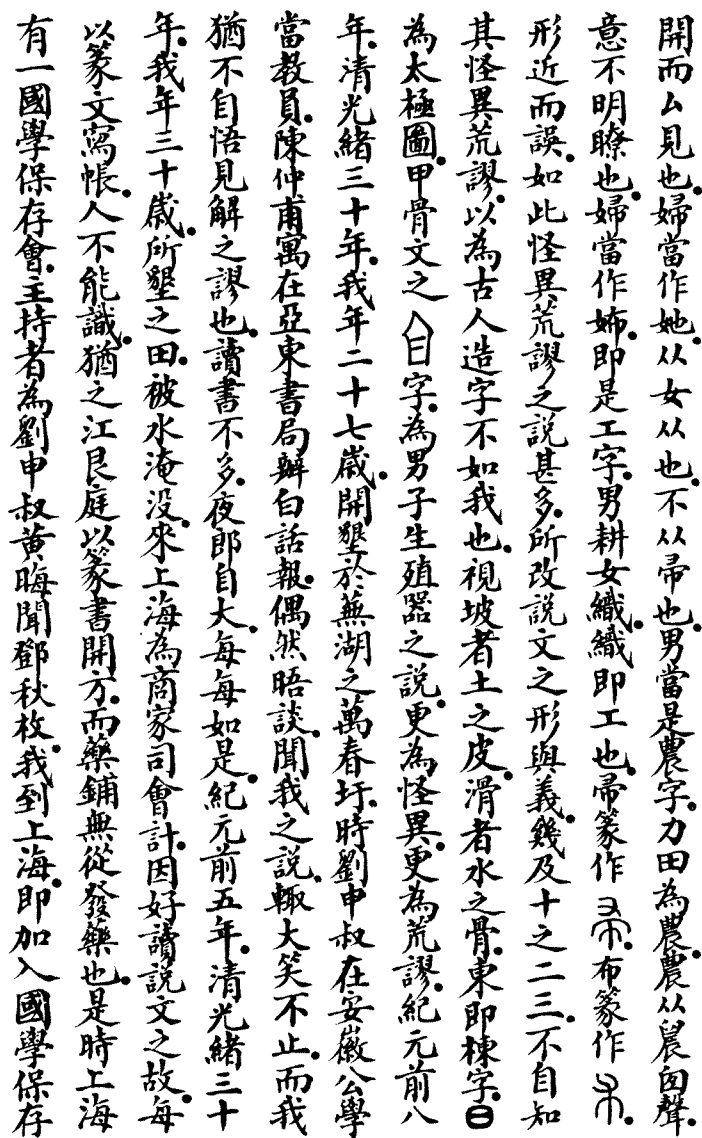 開而厶見也。婦當作她。从女从也。不从帚也。男當是農字。力田為農。農从晨囟聲。
意不明瞭也。婦當作㛍。即是工字。男耕女織。織即工也。帚篆作。布篆作。
形近而誤。如此怪異荒謬之說甚多。所改說文之形與義。幾及十之二三。不自知
其怪異荒謬。以為古人造字不如我也。視坡者土之皮。滑者水之骨。東即棟字。日
為太極圖。甲骨文之字。為男子生殖器之說。更為怪異。更為荒謬。紀元前八
年。清光緒三十年。我年二十七歲。開墾於蕪湖之萬春圩。時劉申叔在安徽公學
當教員。陳仲甫寓在亞東書局辦白話報。偶然晤談。聞我之說。輙大笑不止。而我
猶不自悟見解之謬也。讀書不多。夜郎自大。每每如是。紀元前五年。清光緒三十
年。我年三十歲。所墾之田。被水淹没。來上海為商家司會計。因好讀說文之故。每
以篆文寫帳。人不能識。猶之江艮庭以篆書開方。而藥鋪無從發藥也。是時上海
有一國學保存會。主持者為劉申叔黃晦聞鄧秋枚。我到上海。即加入國學保存